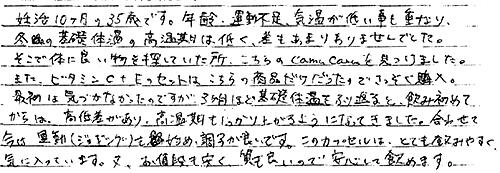 妊活10ヶ月の35歳です。年齢、運動不足、気温が低い事も重なり、
冬場の基礎体温の高温期は低く、差もあまりありませんでした。
そこで体に良い物を探していた所、こちらのCamuCamuを見つけました。
また、ビタミンC+Eのセットはこちらの商品だけだったのでさっそく購入。
最初は気づかなかったのですが3ヶ月ほど基礎体温をふり返ると、飲み初めて
からは、高低差があり、高温期もしっかり上がるようになってきました。合わせて
今は運動(ジョギング)も始め、調子が良いです。このカプセルは、とても飲みやすく
気に入っています。又、お値段も安く、質も良いので安心して飲めます。